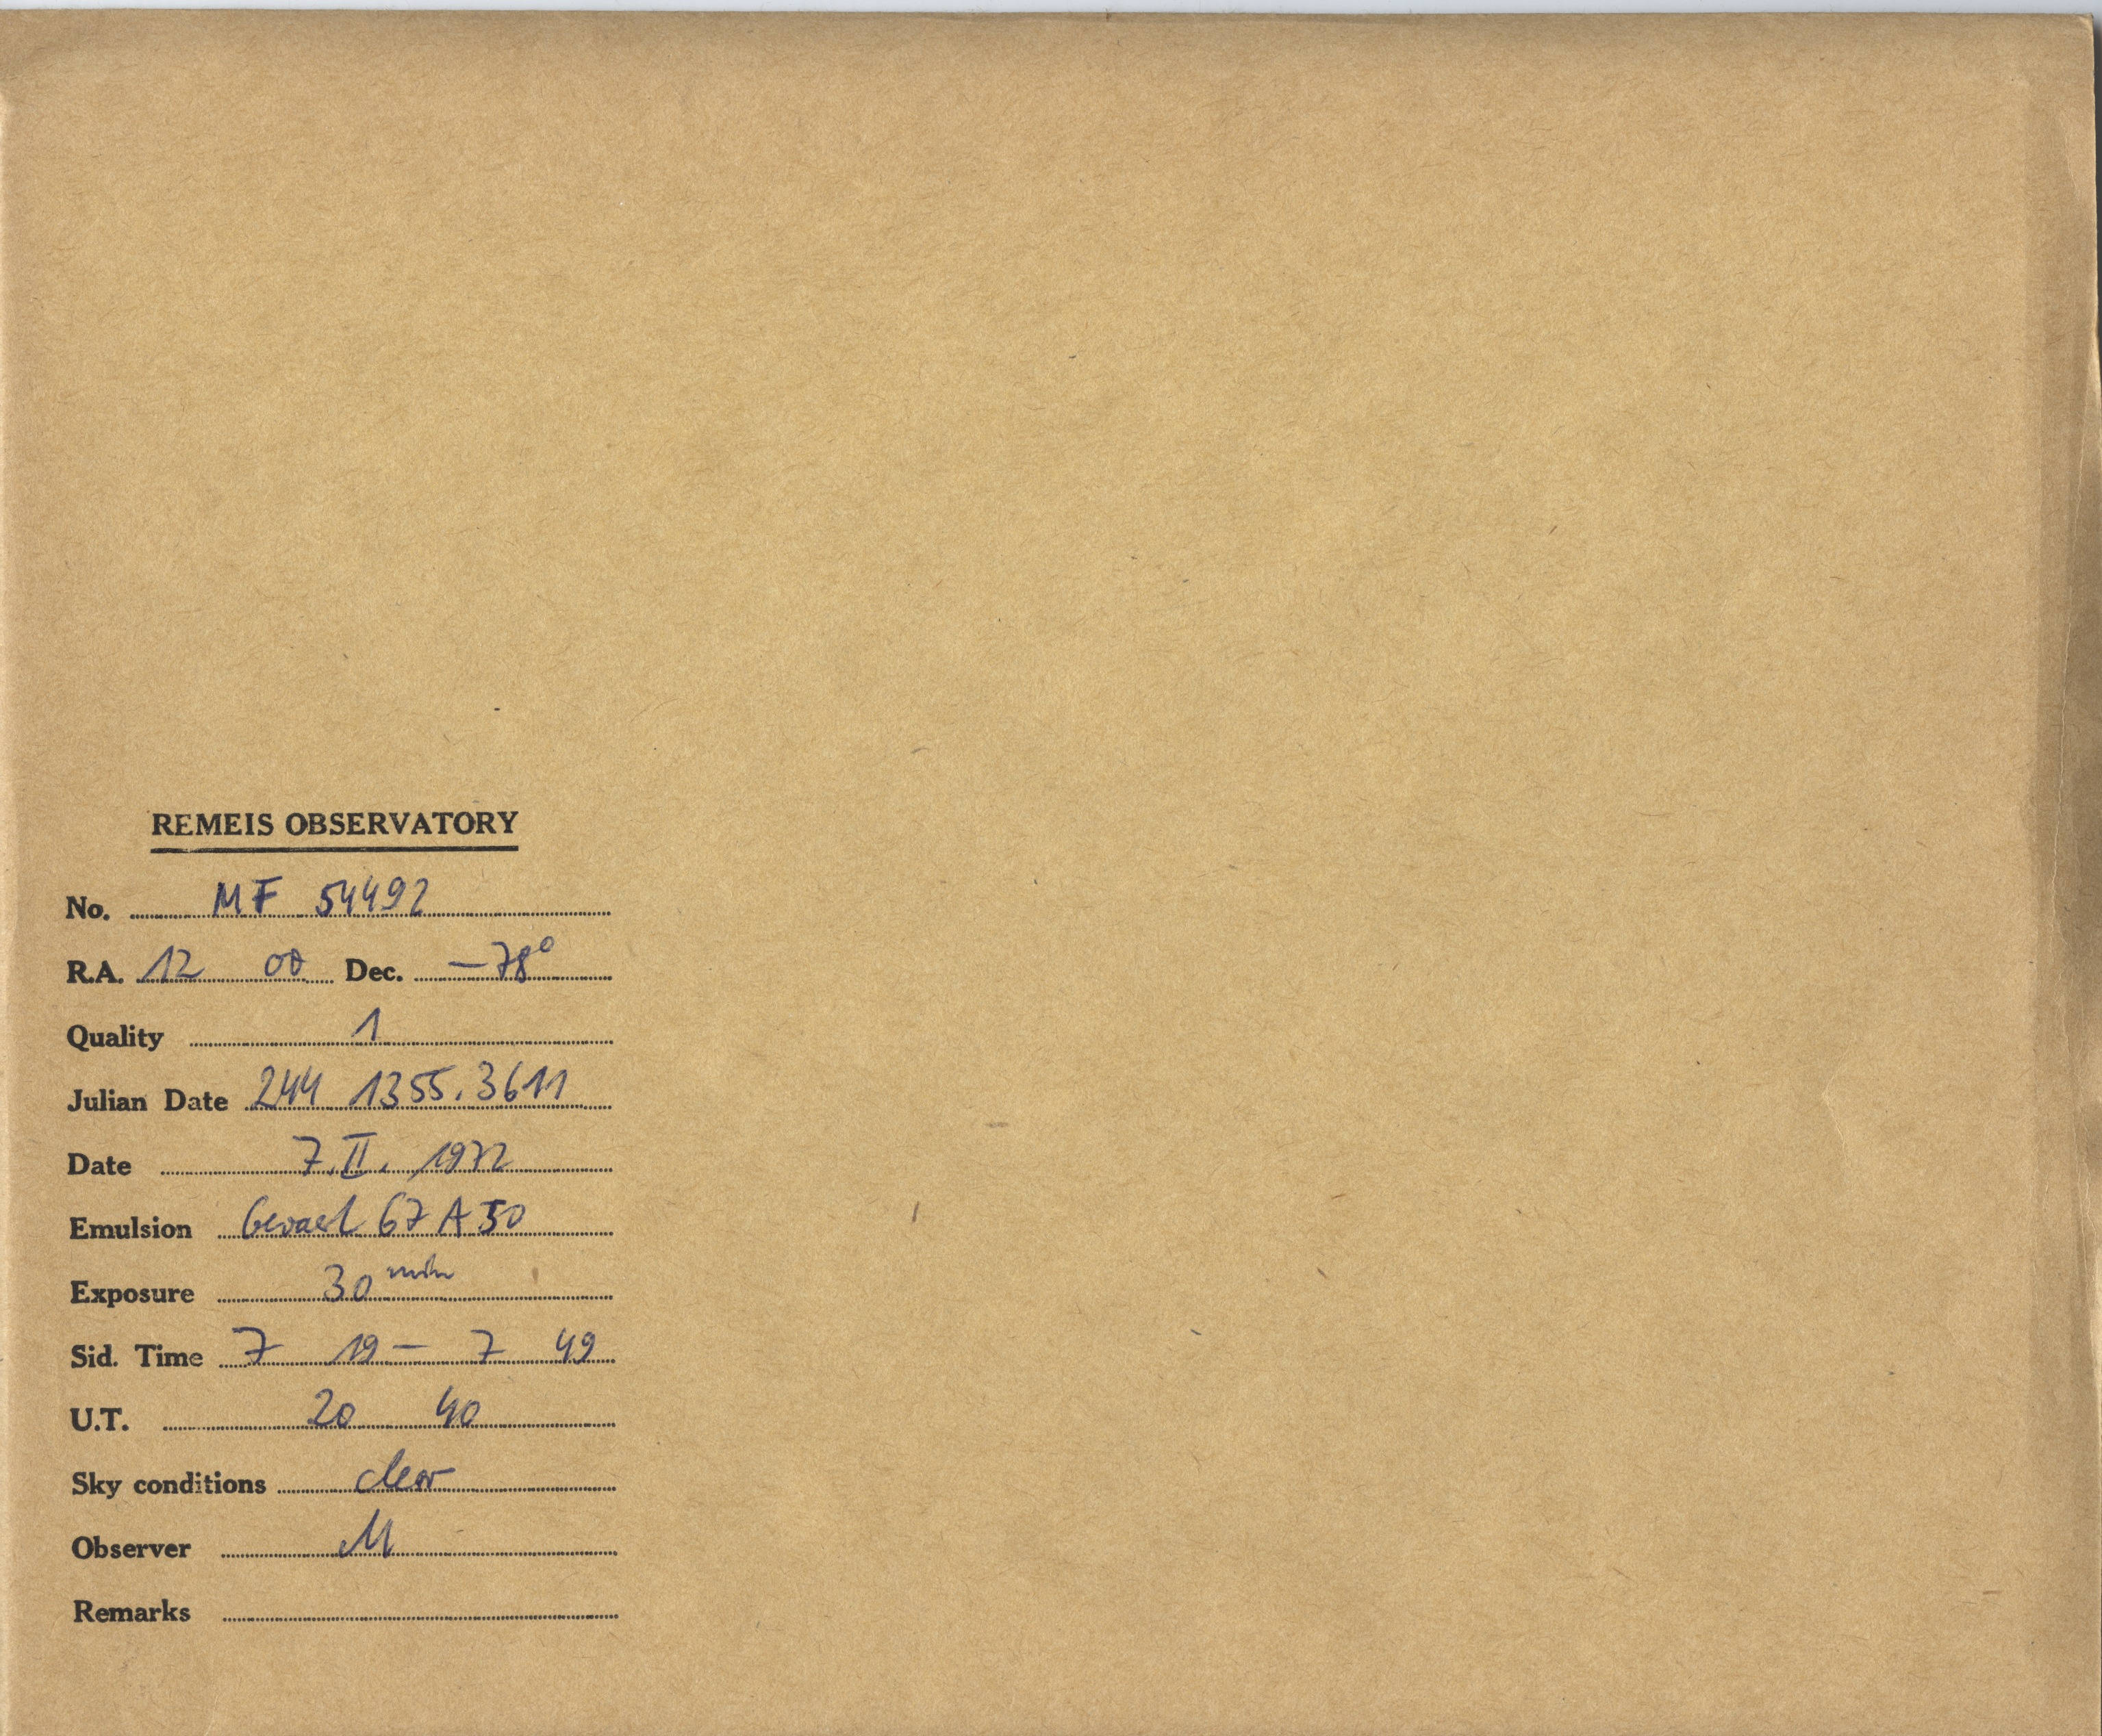 REMEIS OBSERVATORY
No. MF 54492
R.A. 12 00 Dec. −78°
Quality 1
Julian Date 244 1355.3611
Date 7.II.1972
Emulsion Gevaert 67 A 50
Exposure 30 min
Sid. Time 7 19 − 7 49
U.T. 20 40
Sky conditions clear
Observer M
Remarks